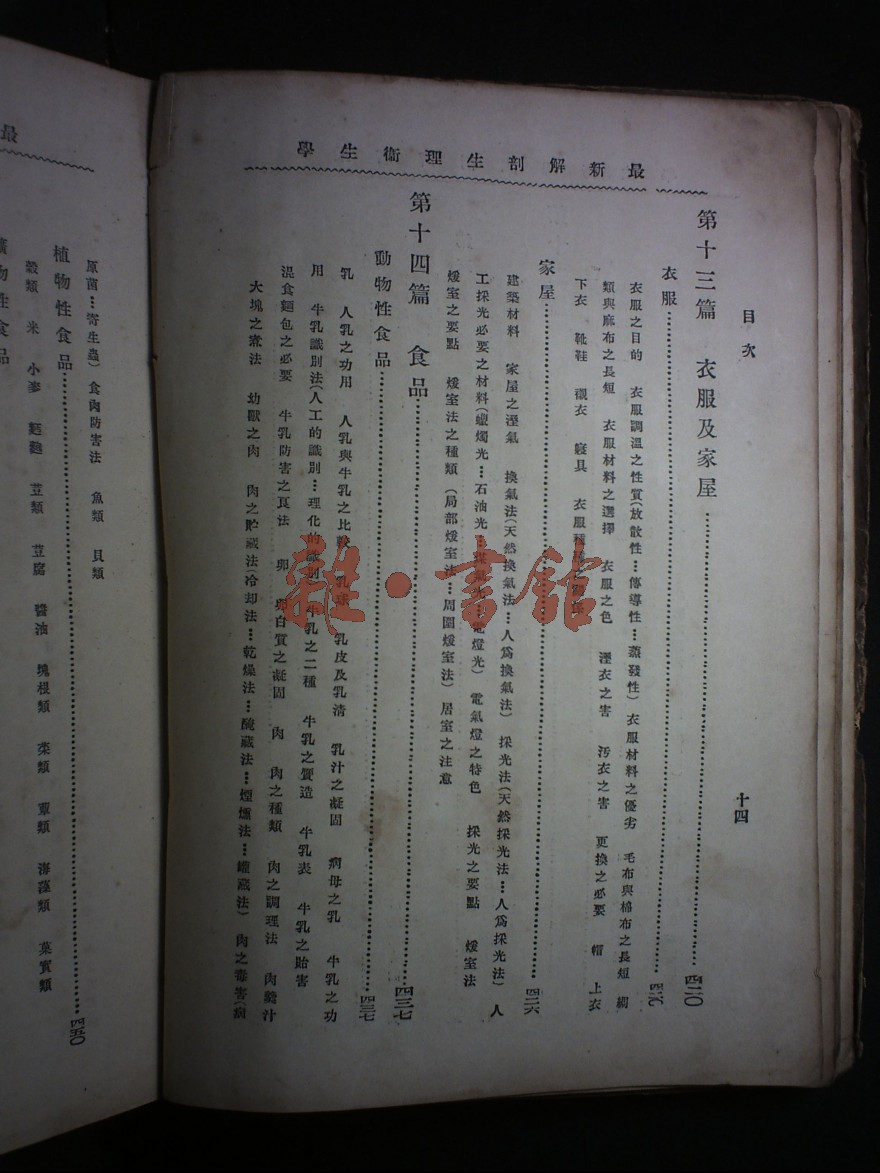 最新解剖生理衞生學
目次
十四
第十三篇 衣服及家屋…………四二〇
衣服…………四二〇
衣服之目的 衣服調溫之性質(放散性…傳導性…蒸發性) 衣服材料之優劣 毛布與棉布之長短 綢
類與麻布之長短 衣服材料之選擇 衣服之色 溼衣之害 汚衣之害 更換之必要 帽 上衣
下衣 靴鞋 襯衣 寢具
家屋…………四二六
建築材料 家屋之溼氣 換氣法(天然換氣法…人爲換氣法) 採光法(天然採光法…人爲採光法) 人
工採光必要之材料(蠟燭光…石油光…煤氣光…電燈光) 電氣燈之特色 採光之要點 煖室法
煖室之要點 煖室法之種類(局部煖室法…周圍煖室法) 居室之注意
第十四篇 食品…………四三七
動物性食品…………四三七
乳 人乳之功用 人乳與牛乳之比較 乳皮及乳清 乳汁之凝固 病母之乳 牛乳之功
用 牛乳識別法(人工的識別…理化的識別) 牛乳之二種 牛乳之贋造 牛乳表 牛乳之貽害
混食麵包之必要 牛乳防害之良法 卵 卵白質之凝固 肉 肉之種類 肉之調理法 肉膾汁
大塊之煑法 幼獸之肉 肉之貯藏法(冷却法…乾燥法…醃藏法…煙燻法…罐藏法) 肉之毒害(病
最
原菌…寄生蟲) 食肉防害法 魚類 貝類
植物性食品…………四五〇
穀類 米 小麥 麵麴 荳類 荳腐 醬油 塊根類 菜類 蕈類 海藻類 菓實類
礦物性食品
雜·書館